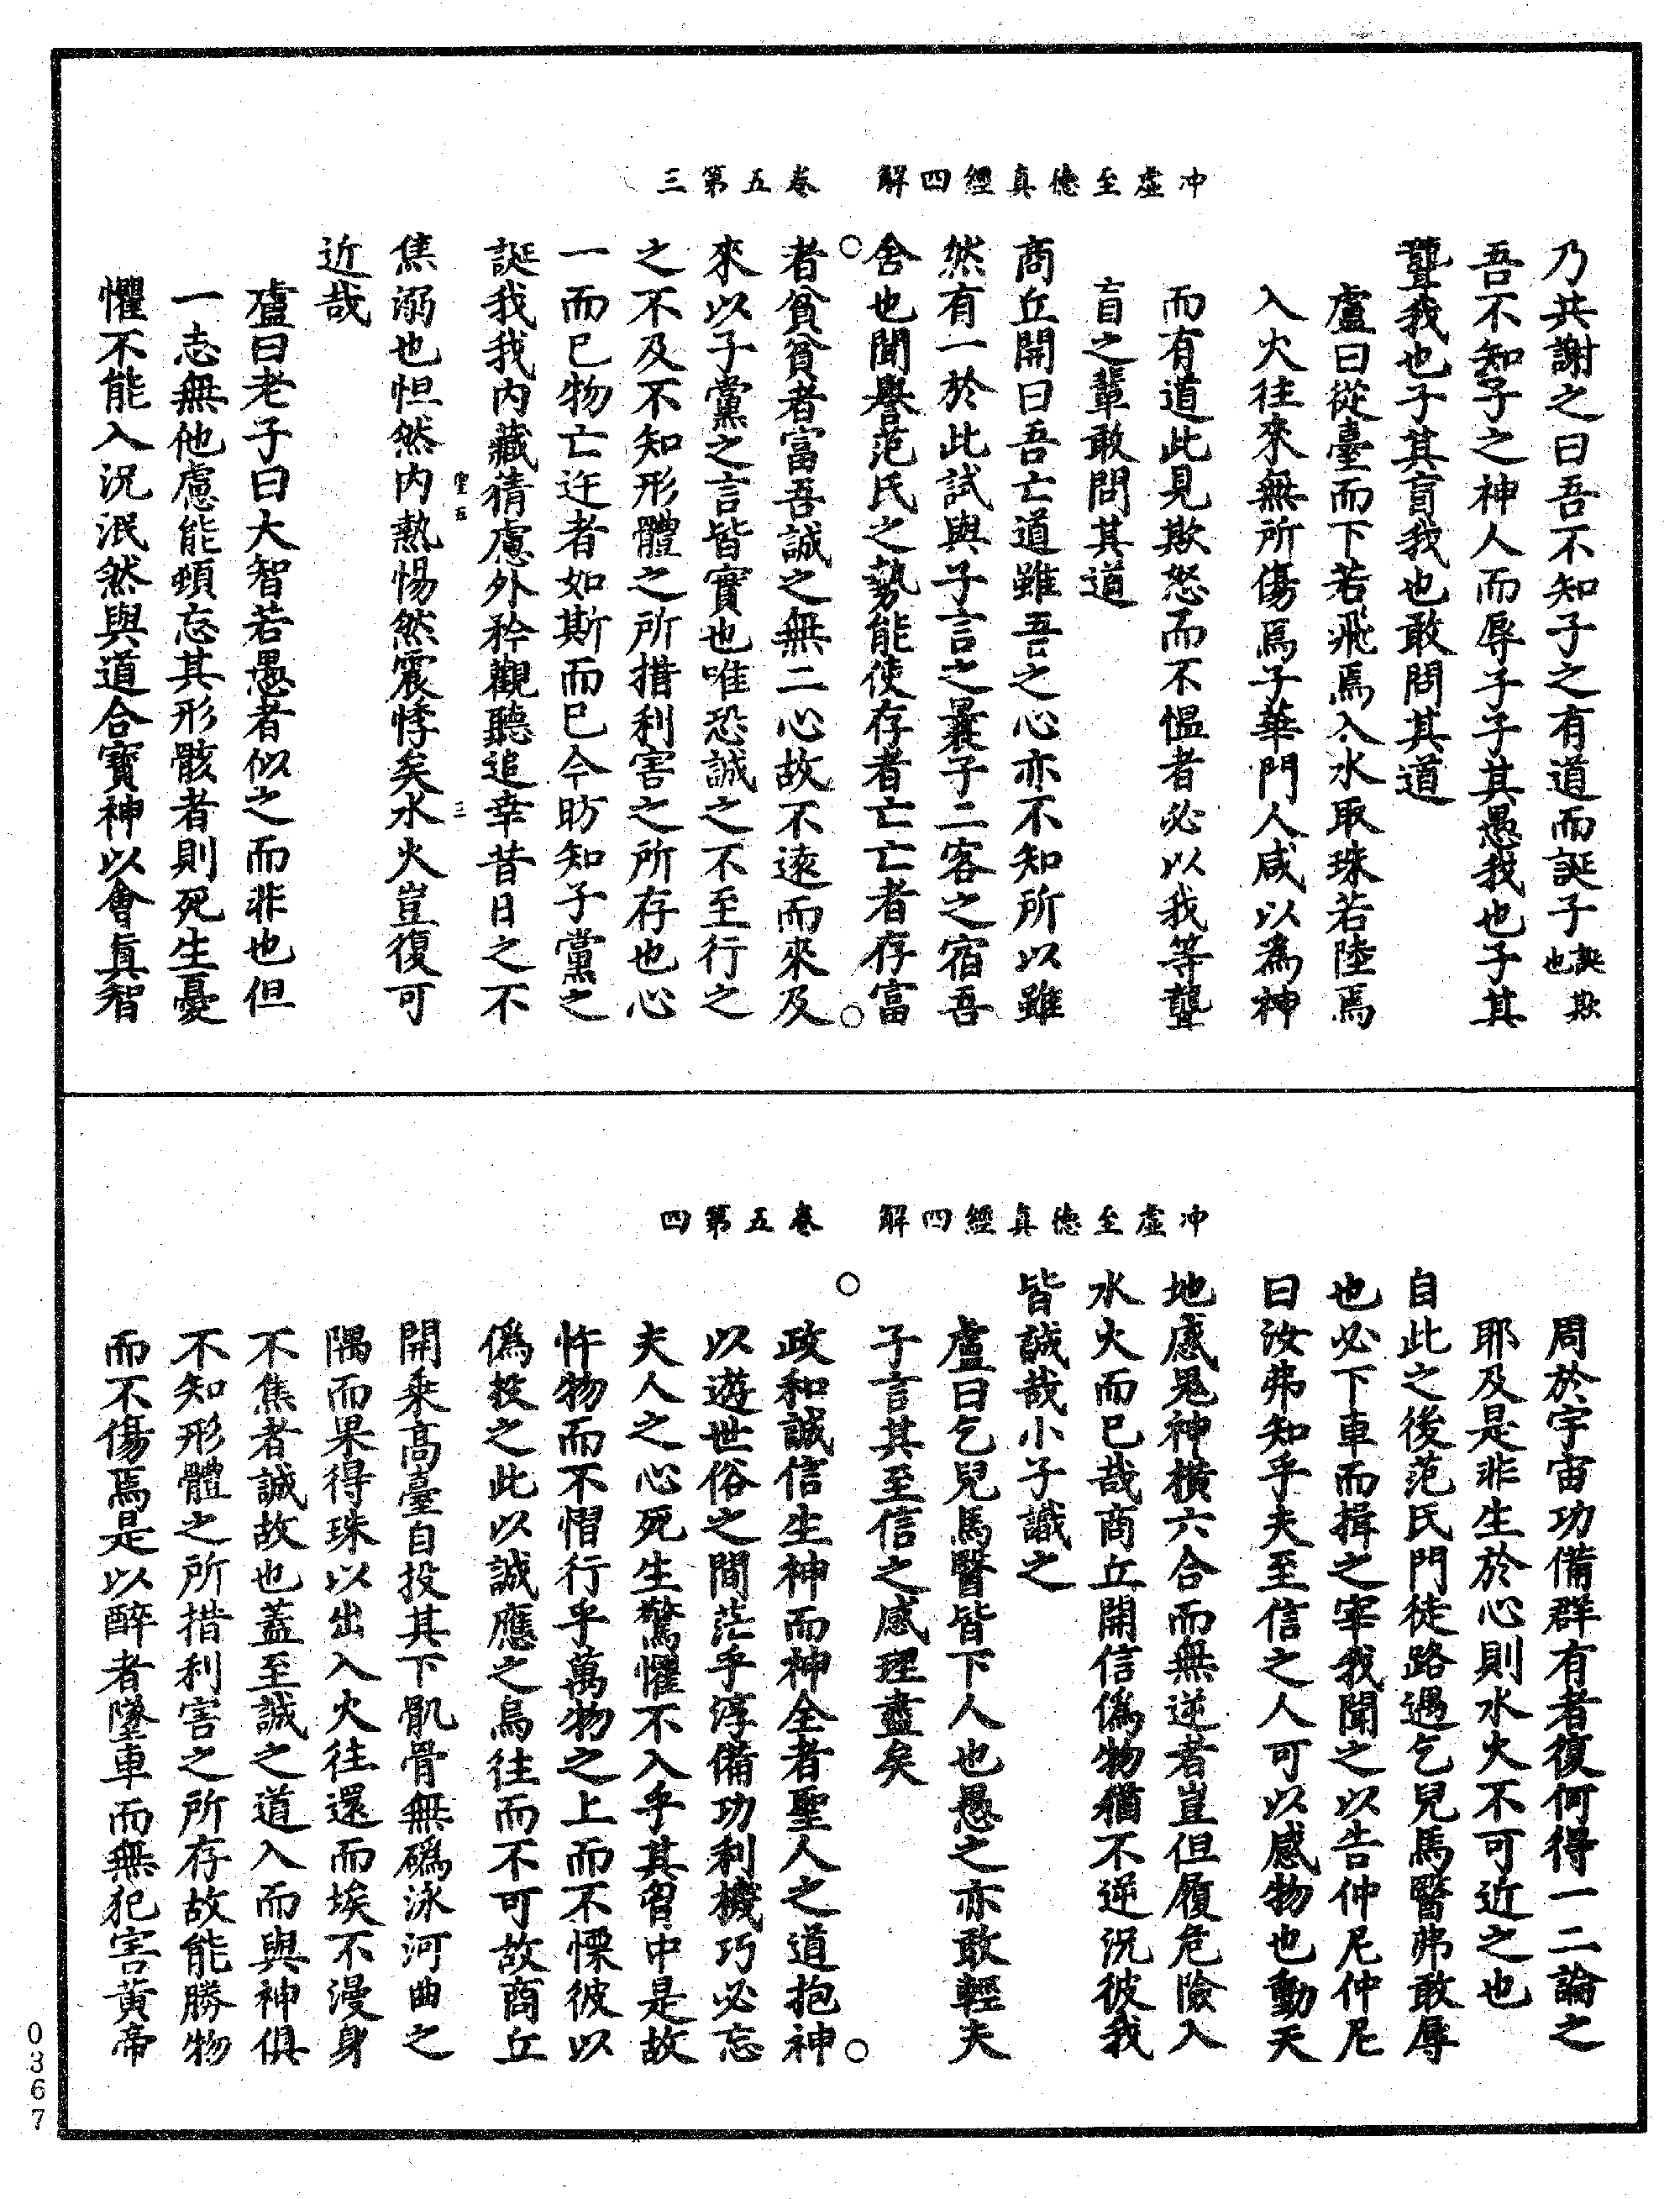 冲虛至德真經四解　卷五第三
乃共謝之曰吾不知子之有道而誕子誕欺也
吾不知子之神人而辱子子其愚我也子其
聾我也子其盲我也敢問其道
盧曰從臺而下若飛焉入水取珠若陸焉
入火往來無所傷焉子華門人咸以為神
而有道此見欺怒而不愠者必以我等聾
盲之輩敢問其道
商丘開曰吾亡道雖吾之心亦不知所以雖
然有一於此試與子言之曩子二客之宿吾
舍也聞譽范氏之勢能使存者亡亡者存富
者貧貧者富吾誠之無二心故不遠而來及
來以子黨之言皆實也唯恐誠之不至行之
之不及不知形體之所措利害之所存也心
一而已物亡迕者如斯而已今昉知子黨之
誕我我內藏猜慮外矜觀聽追幸昔日之不
焦溺也怛然內熱惕然震悸矣水火豈復可
近哉
盧曰老子曰大智若愚者似之而非也但
一志無他慮能頓忘其形骸者則死生憂
懼不能入況泯然與道合寶神以會真智
冲虛至德真經四解　卷五第四
周於宇宙功備群有者復何得一二論之
耶及是非生於心則水火不可近之也
自此之後范氏門徒路遇乞兒馬醫弗敢辱
也必下車而揖之宰我聞之以告仲尼仲尼
曰汝弗知乎夫至信之人可以感物也動天
地感鬼神橫六合而無逆者豈但履危險入
水火而已哉商丘開信偽物猶不逆況彼我
皆誠哉小子識之
盧曰乞兒馬醫皆下人也愚之亦敢輕夫
子言其至信之感理盡矣
政和誠信生神而神全者聖人之道抱神
以遊世俗之間茫乎淳備功利機巧必忘
夫人之心死生驚懼不入乎其胷中是故
忤物而不慴行乎萬物之上而不慄彼以
偽投之此以誠應之烏往而不可故商丘
開乘高臺自投其下骪骨無磯泳河曲之
隅而果得珠以出入火往還而埃不漫身
不焦者誠故也蓋至誠之道入而與神俱
不知形體之所措利害之所存故能勝物
而不傷焉是以醉者墜車而無犯害黃帝
0367